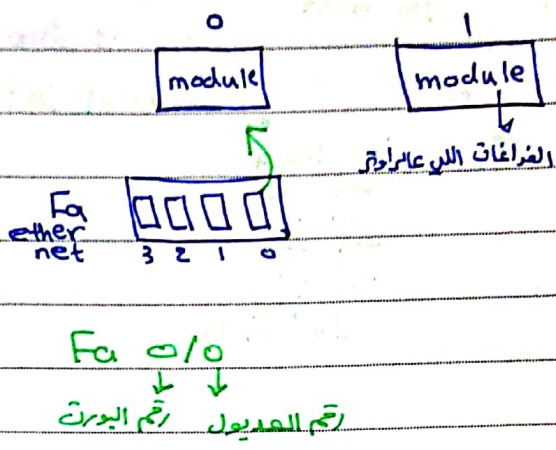 0 1
module module
الفراغات اللي عالراوتر
Fa
ether
net
3 2 1 0
Fa 0/0
رقم البورت رقم المديول